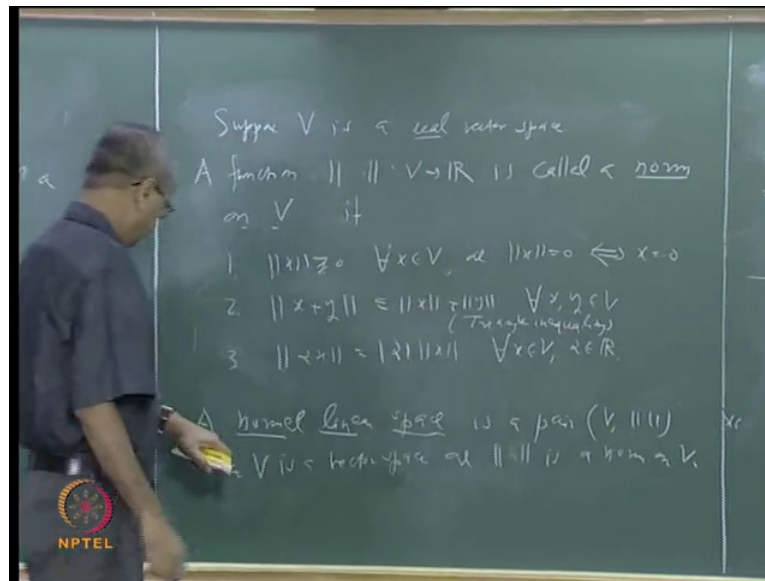 Suppose V is a real vector space
n a
A function || || : V → ℝ is called a norm
on V if
1. ||x|| ≥ 0 ∀ x ∈ V, and ||x|| = 0 ⟺ x = 0
2. ||x + y|| ≤ ||x|| + ||y|| ∀ x, y ∈ V
(Triangle inequality)
3. ||αx|| = |α| ||x|| ∀ x ∈ V, α ∈ ℝ.
A normed linear space is a pair (V, || ||)
V is a vector space and || || is a norm on V.
NPTEL